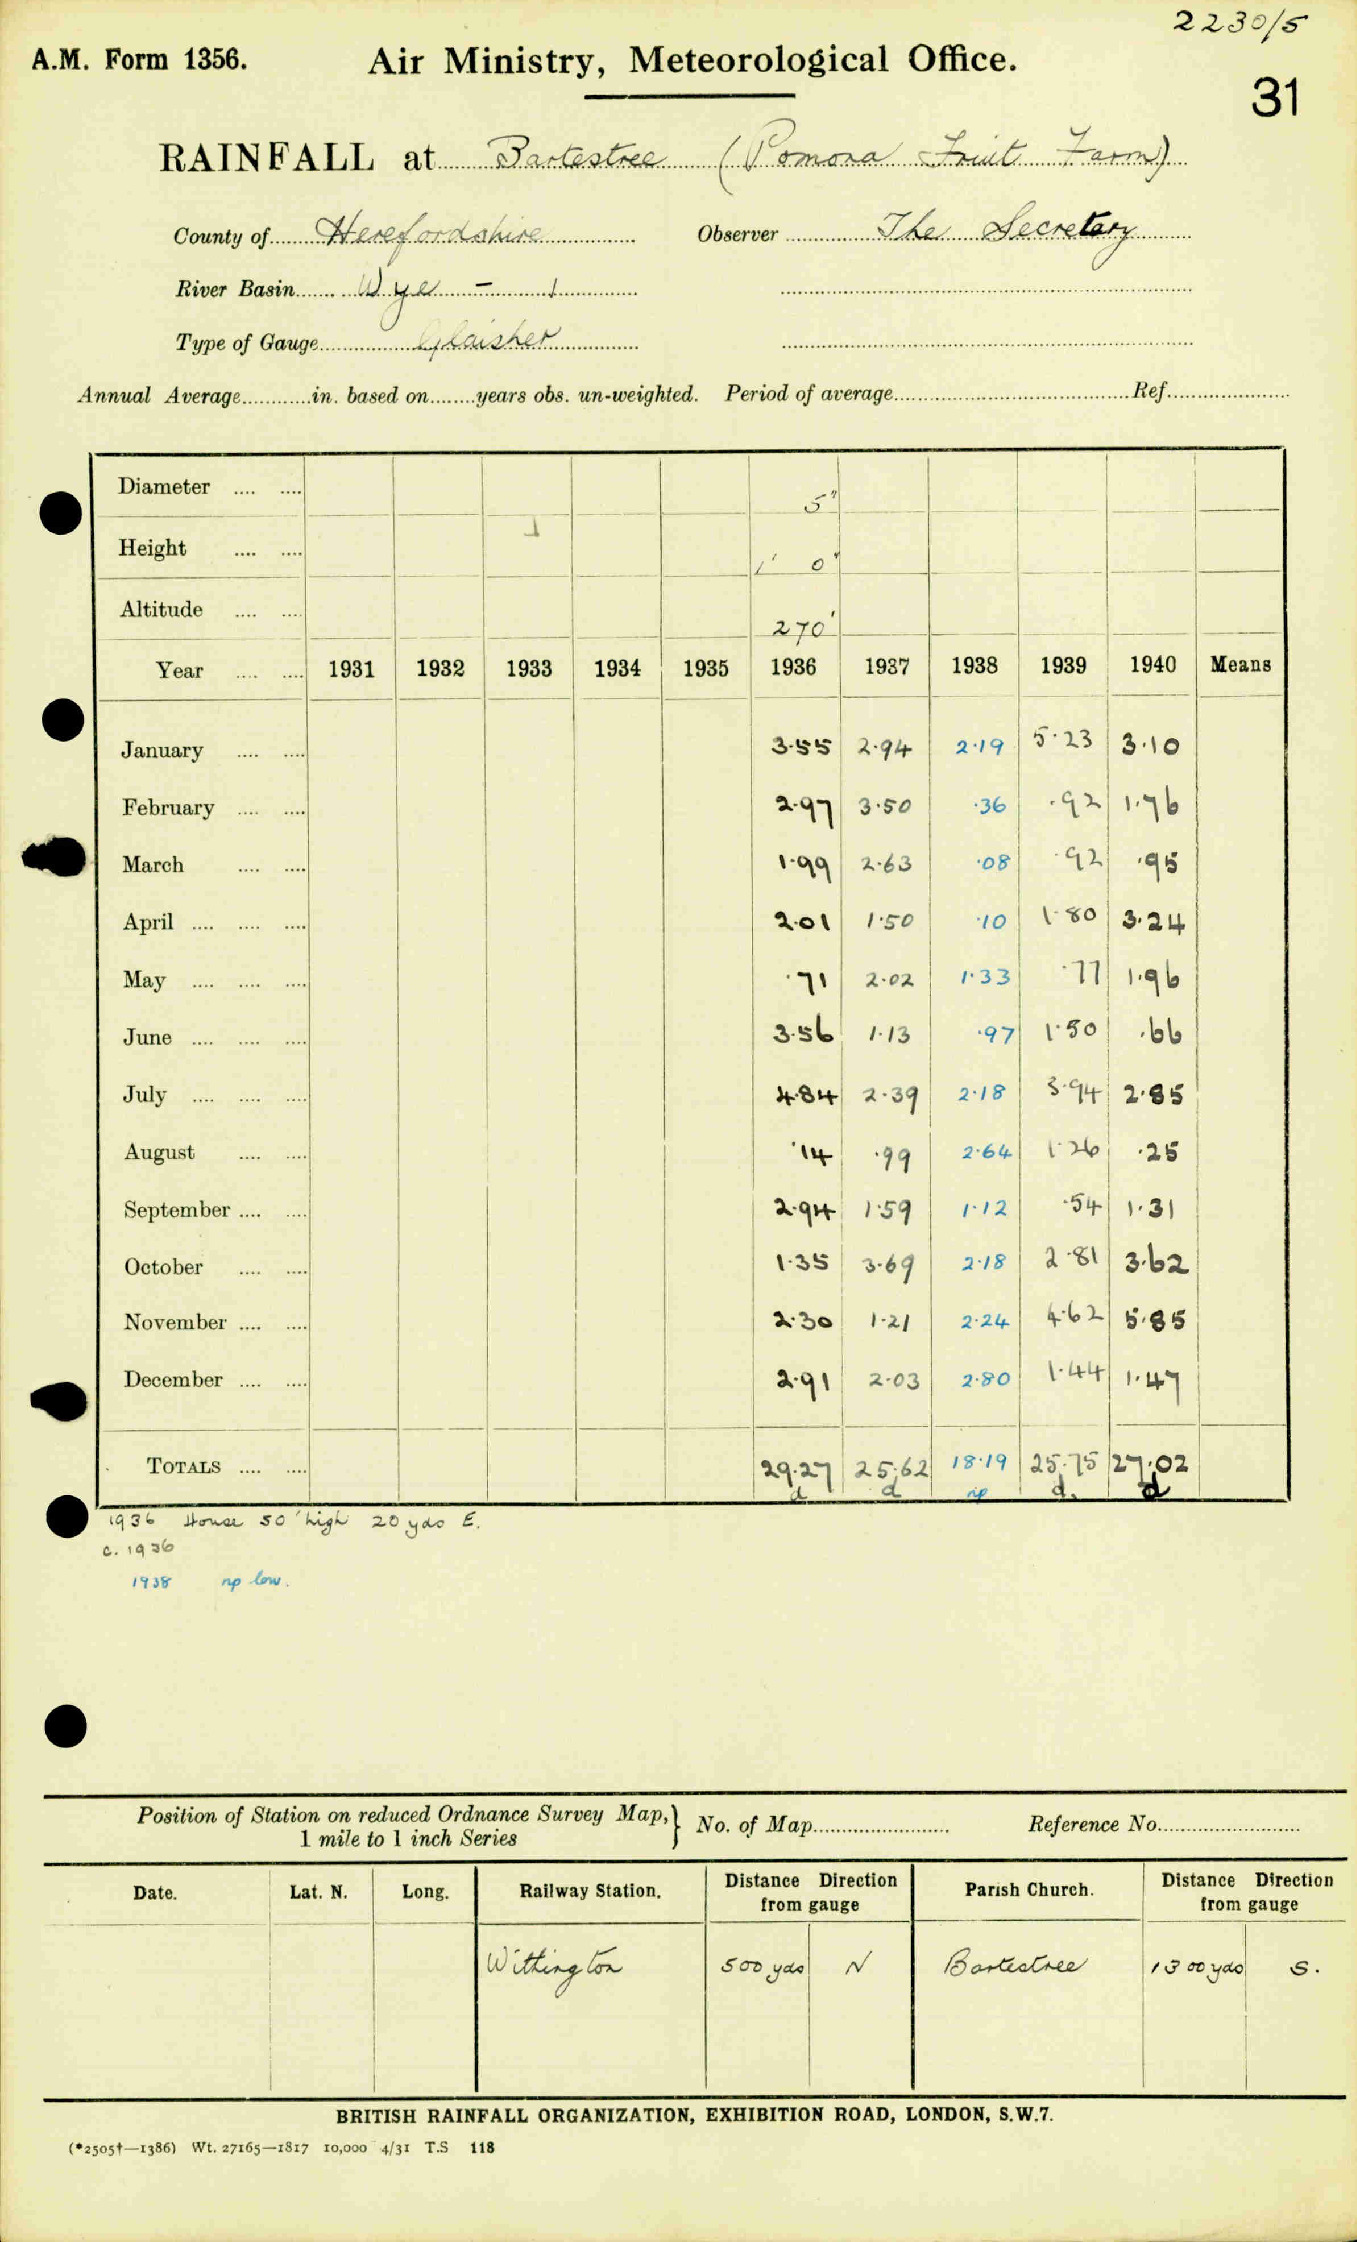 2230/5
A.M. Form 1356. Air Ministry, Meteorological Office.
31
RAINFALL at Bartestree (Pomona Fruit Farm)
County of Herefordshire Observer The Secretary
River Basin Wye - 1
Type of Gauge Glaisher
Annual Average in. based on years obs. un-weighted. Period of average Ref.
Diameter 5"
Height 1' 0"
Altitude 270'
Year 1931 1932 1933 1934 1935 1936 1937 1938 1939 1940 Means
January 3.55 2.94 2.19 5.23 3.10
February 2.97 3.50 .36 .92 1.76
March 1.99 2.63 .08 .92 .95
April 2.01 1.50 .10 1.80 3.24
May .71 2.02 1.33 .77 1.96
June 3.56 1.13 .97 1.50 .66
July 4.84 2.39 2.18 3.94 2.85
August .14 .99 2.64 1.26 .25
September 2.94 1.59 1.12 .54 1.31
October 1.35 3.69 2.18 2.81 3.62
November 2.30 1.21 2.24 4.62 5.85
December 2.91 2.03 2.80 1.44 1.47
TOTALS 29.27 25.62 18.19 25.75 27.02
d d np d. d
1936 House 50' high 20 yds E.
c. 1936
1938 np low.
Position of Station on reduced Ordnance Survey Map, } No. of Map Reference No.
1 mile to 1 inch Series
Date. Lat. N. Long. Railway Station. Distance Direction from gauge Parish Church. Distance Direction from gauge
Withington 500 yds N Bartestree 1300 yds S.
BRITISH RAINFALL ORGANIZATION, EXHIBITION ROAD, LONDON, S.W.7.
(*2505†—1386) Wt. 27165—1817 10,000 4/31 T.S 118